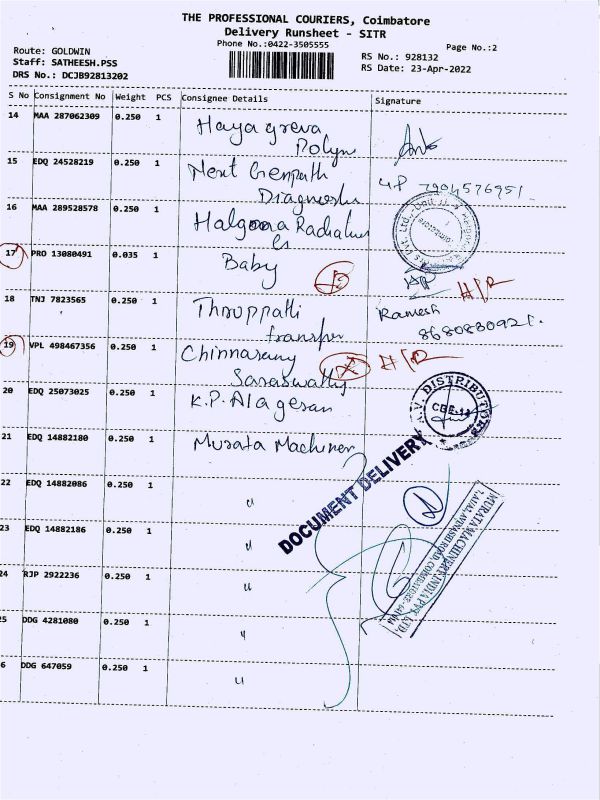 THE PROFESSIONAL COURIERS, Coimbatore
Delivery Runsheet - SITR
Phone No.:0422-3505555
Page No.:2
Route: GOLDWIN
Staff: SATHEESH.PSS
DRS No.: DCJB92813202
RS No.: 928132
RS Date: 23-Apr-2022
S No Consignment No Weight PCS Consignee Details Signature
14 MAA 287062309 0.250 1 Hayagreva
15 EDQ 24528219 0.250 1 Next Genpath
7904576951
16 MAA 289528578 0.250 1
17 PRO 13080491 0.035 1 Baby
H/R
18 TNJ 7823565 0.250 1 Thiruppathi
Ramesh
8680880921.
19 VPL 498467356 0.250 1 Chinnasamy
H/R
Saraswathy
20 EDQ 25073025 0.250 1 K.P. Alagesan
A.V. DISTRIBUTORS
21 EDQ 14882180 0.250 1 Murata Machinery
DOCUMENT DELIVERY
22 EDQ 14882086 0.250 1 "
MURATA MACHINERY INDIA PVT. LTD.
23 EDQ 14882186 0.250 1 "
24 RJP 2922236 0.250 1 "
5 DDG 4281080 0.250 1 "
6 DDG 647059 0.250 1 "